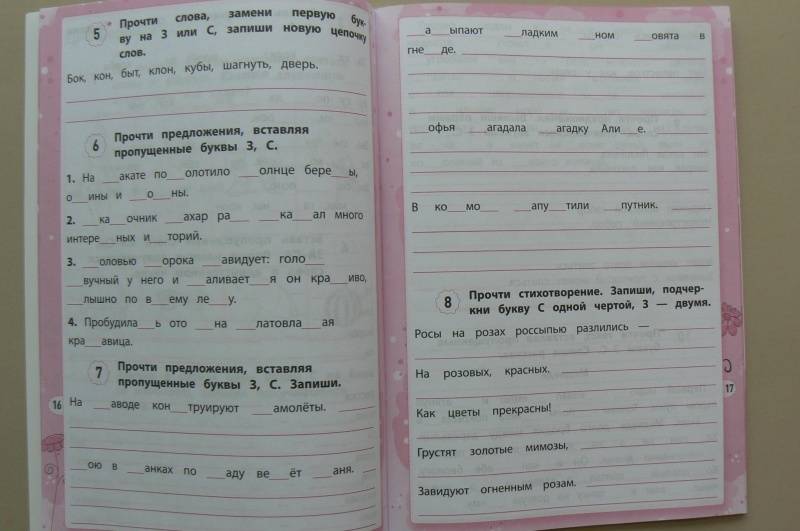 5 Прочти слова, замени первую бук-
ву на З или С, запиши новую цепочку
слов.
Бок, кон, быт, клон, кубы, шагнуть, дверь.
6 Прочти предложения, вставляя
пропущенные буквы З, С.
1. На __акате по__олотило __олнце бере__ы,
о__ины и __о__ны.
2. __ка__очник __ахар ра__ __ка__ал много
интере__ных и__торий.
3. __оловью __орока __авидует: голо__
__вучный у него и __аливает__я он кра__иво,
__лышно по в__ему ле__у.
4. Пробудила__ь ото __на __латовла__ая
кра__авица.
7 Прочти предложения, вставляя
пропущенные буквы З, С. Запиши.
На __аводе кон__труируют __амолёты.
__ою в __анках по __аду ве__ёт __аня.
16
__а__ыпают __ладким __ном __овята в
гне__де.
__офья __агадала __агадку Али__е.
В ко__мо__ __апу__тили __путник.
8 Прочти стихотворение. Запиши, подчер-
кни букву С одной чертой, З — двумя.
Росы на розах россыпью разлились —
На розовых, красных.
Как цветы прекрасны!
Грустят золотые мимозы,
Завидуют огненным розам.
17